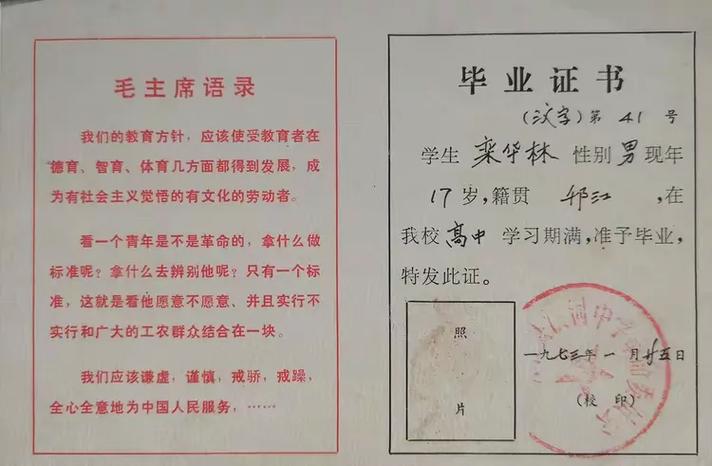 毛主席语录
我们的教育方针，应该使受教育者在
德育、智育、体育几方面都得到发展，成
为有社会主义觉悟的有文化的劳动者。
看一个青年是不是革命的，拿什么做
标准呢？拿什么去辨别他呢？只有一个标
准，这就是看他愿意不愿意、并且实行不
实行和广大的工农群众结合在一块。
我们应该谦虚，谨慎，戒骄，戒躁，
全心全意地为中国人民服务，……
毕业证书
（汶字）第 41 号
学生 栾华林 性别 男 现年
17 岁，籍贯 邗江 ，在
我校 高中 学习期满，准予毕业，
特发此证。
照
片
一九七三年一月廿五日
（校印）